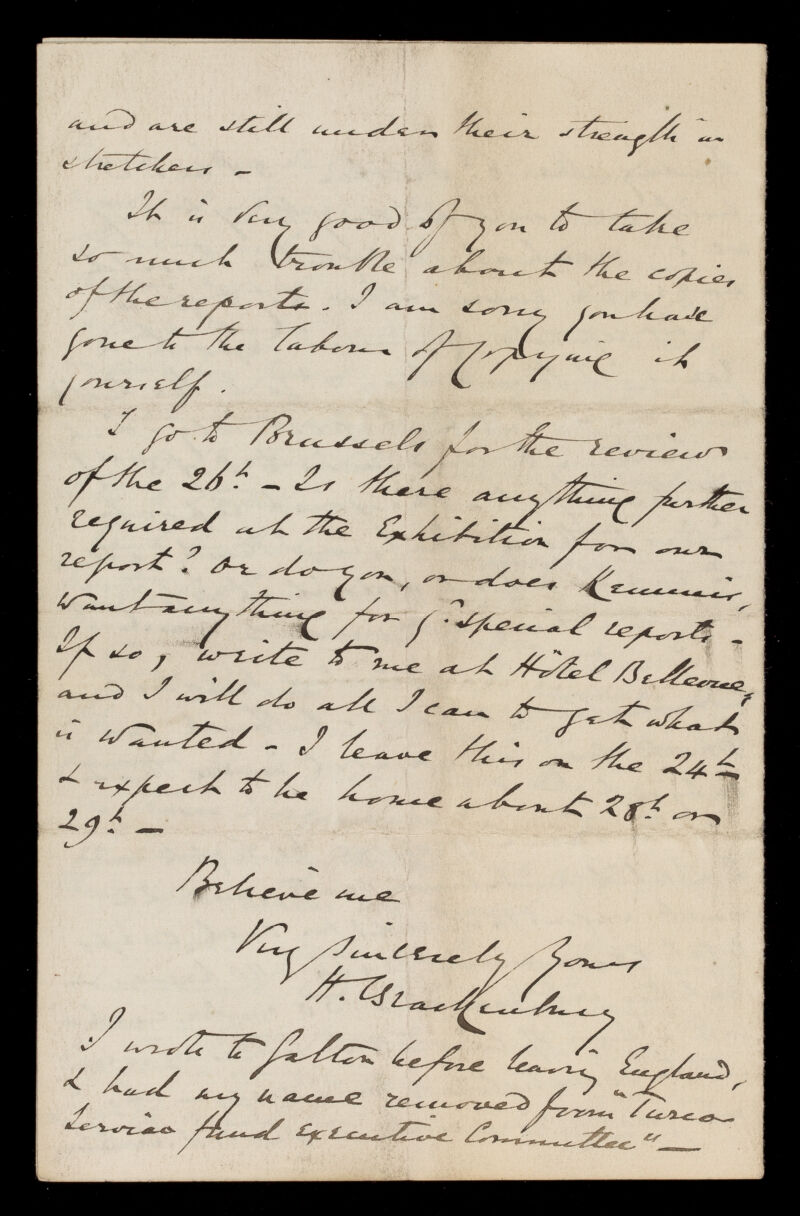 and are still under their strength in
stretchers –
It is very good of you to take
so much trouble about the copies
of the reports. I am sorry you have
gone to the labour of copying it
yourself.
I go to Brussels for the review
of the 26th – Is there anything further
required at the Exhibition for our
report? Or do you, or does
want anything for yr special reports –
If so, write to me at Hôtel Bellevue,
and I will do all I can to get what
is wanted – I leave this on the 24th
& expect to be home about 28th or
29th –
Believe me
Very sincerely yours
H. Brackenbury
I wrote to Galton before leaving England,
& had my name removed from "Turco
Servian fund executive Committee" –